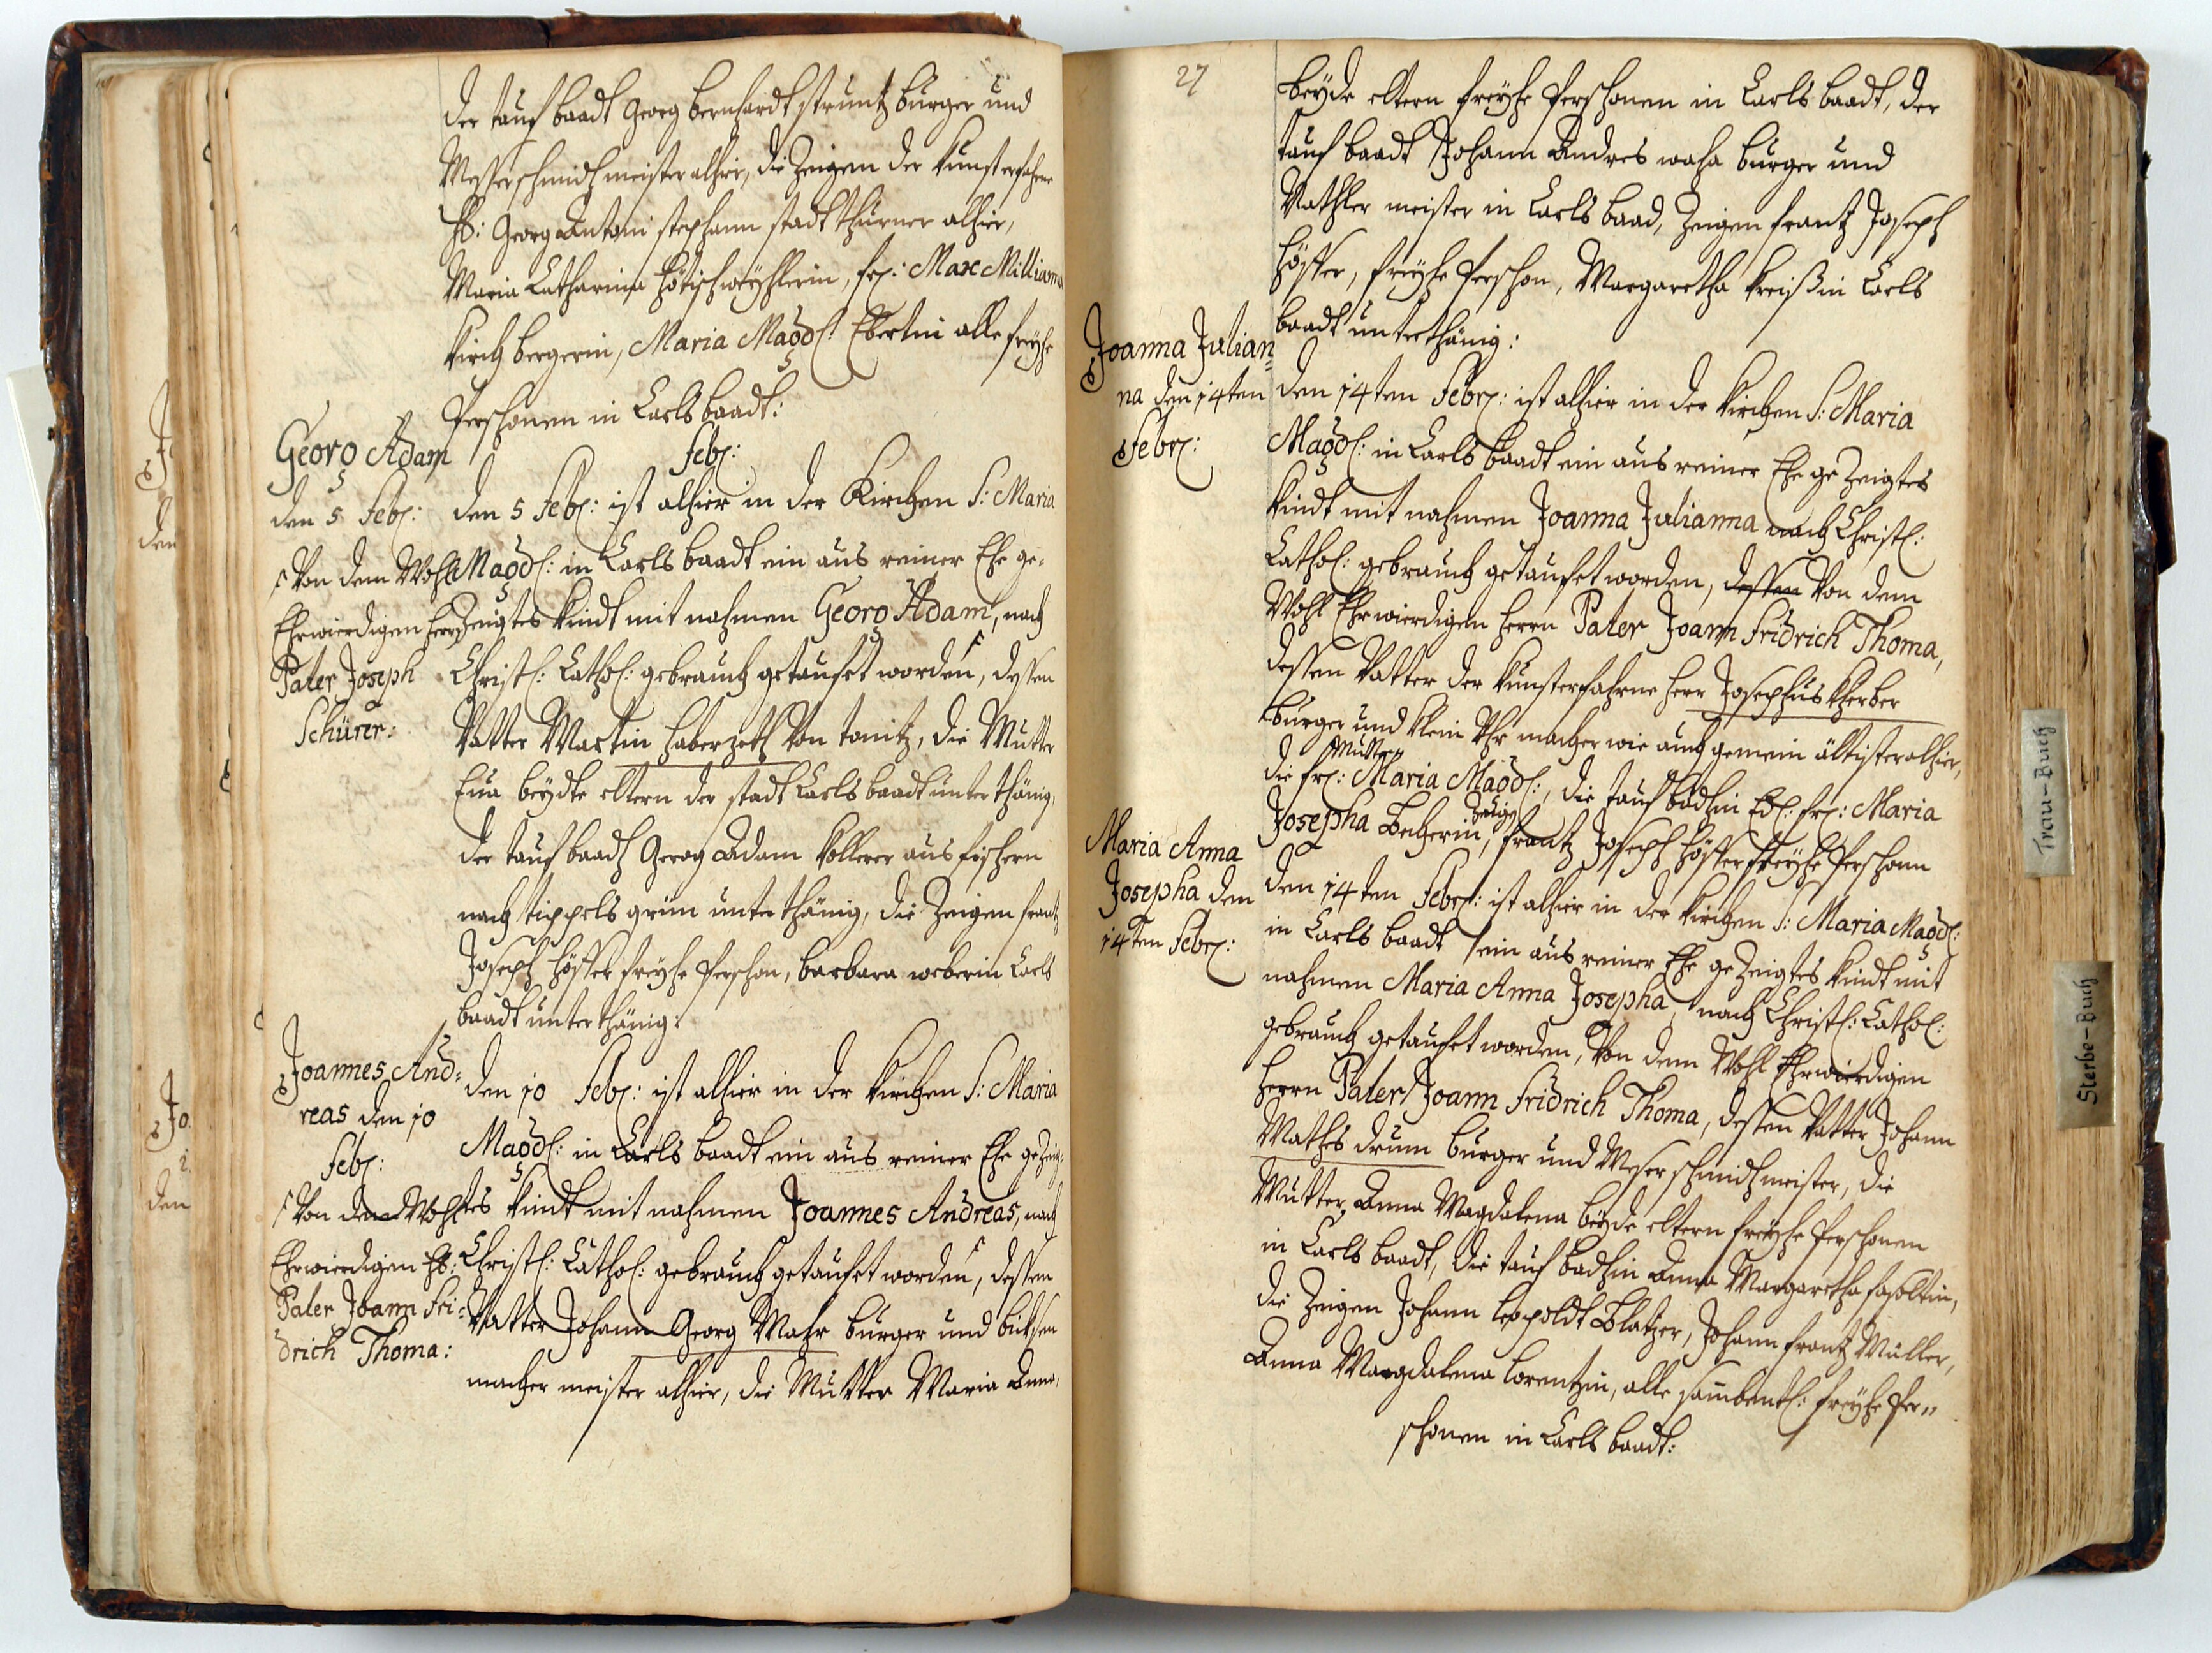 der tauf baadt Georg bernhardt strunz bürger und
Messerschmidt meister alhier, die Zeigen der kunsterfahrne
H: Georg Antoni stephann stadt thürner alhier,
Maria Catharina frl: Max Milliama
Kirchbergerin, Maria Magdl: Ebertin alle freÿhe
Perschonen in Carls baadt:
Georg Adam
den 5 Feb:
/ Von dem Wohl
Ehrwierdigen Herrn
Pater Joseph
Schürer:
Feb:
den 5 Feb: ist alhier in der Kirchen S: Maria
Magdl: in Carls baadt ein aus reiner Ehe ge-
zeigtes kindt mit nahmen Georg Adam, nach
Christl: Cathol: gebrauch getaufet worden /, dessen
Vatter Martin Haberzeth Von tonitz, die Mutter
Eua beÿdte eltern der stadt Carls baadt unterthänig,
der tauf baadt Georg Adam Vollerer aus fischern
nach tippels grün unterthänig, die Zeigen frantz
Joseph Hösser freÿhe Perschon, barbara weberin Carls
baadt unterthänig:
Joannes And:
reas den 10
Feb:
/ Von dem Wohl
Ehrwierdigen H:
Pater Joann Fri:
drich Thoma:
den 10 Feb: ist alhier in der Kirchen S: Maria
Magdl: in Carls baadt ein aus reiner Ehe gezeig-
tes kindt mit nahmen Joannes Andreas, nach
Christl: Cathol: gebrauch getaufet worden /, dessen
Vatter Johann Georg Mahr bürger und bichsen
macher meister alhier, die Mutter Maria Anna,
27
beÿde eltern freÿhe Perschonen in Carls baadt, der
tauf baadt Johann Andres waha bürger und
Nathler meister in Carls baad, Zeigen frantz Joseph
Hösser, freÿhe Perschon, Margaretha Kreißin Carls
baadt unterthänig:
Joanna Julian=
na den 14ten
Febr:
den 14ten Febr: ist alhier in der kirchen S: Maria
Magdl: in Carls baadt ein aus reiner Ehe gezeigtes
kindt mit nahmen Joanna Julianna nach Christl:
Cathol: gebrauch getaufet worden, dessen Von dem
Wohl Ehrwierdigen Herrn Pater Joann Fridrich Thoma,
dessen Vatter der kunsterfahrne Herr Josephus Kherber
bürger und klein Uhr macher wie auch gemein ältister alhier,
Mutter
die frl: Maria Magdl:, die tauf badhin Edl: frl: Maria
Zeige
Josepha Becherin, frantz Joseph Hösser freÿhe Perschonn
Maria Anna
Josepha den
14ten Febr:
den 14ten Febr: ist alhier in der kirchen S: Maria Magdl:
in Carls baadt ein aus reiner Ehe gezeigtes kindt mit
nahmen Maria Anna Josepha, nach Christl: Cathol:
gebrauch getaufet worden, Von dem Wohl Ehrwierdigen
Herrn Pater Joann Fridrich Thoma, dessen Vatter Johann
Mathes drum bürger und Messerschmidt meister, die
Mutter Anna Magdalena beÿde eltern freÿhe Perschonen
in Carls baadt, die tauf badhin Anna Margaretha fasoltin,
die Zeigen Johann leopoldt Blatzer, Johann frantz Müller,
Anna Magdalena lorentzin, alle sambentl: freÿhe Per„
schonen in Carls baadt:
Trau-Buch
Sterbe-Buch